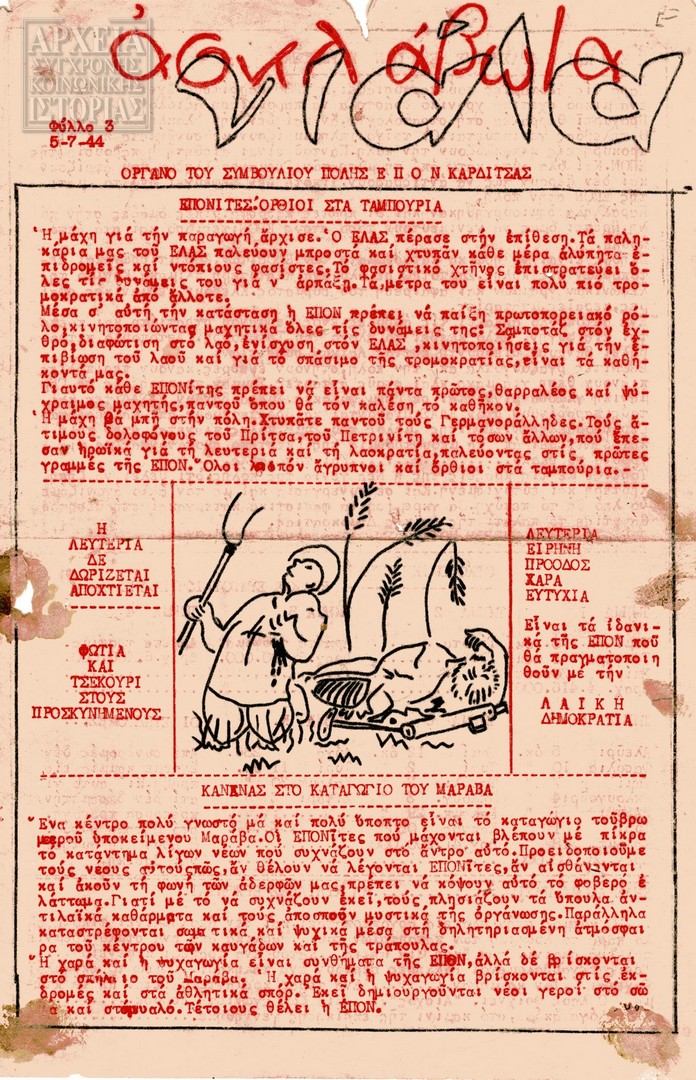 ΑΡΧΕΙΑ
ΣΥΓΧΡΟΝΗΣ
ΚΟΙΝΩΝΙΚΗΣ
ΙΣΤΟΡΙΑΣ
ἀσκλάβωτα
νιάτα
Φύλλο 3
5-7-44
ΟΡΓΑΝΟ ΤΟΥ ΣΥΜΒΟΥΛΙΟΥ ΠΟΛΗΣ Ε Π Ο Ν ΚΑΡΔΙΤΣΑΣ
ΕΠΟΝΙΤΕΣ ΟΡΘΙΟΙ ΣΤΑ ΤΑΜΠΟΥΡΙΑ
Ἡ μάχη γιά τήν παραγωγή ἄρχισε. Ὁ ΕΛΑΣ πέρασε στήν ἐπίθεση.Τά παλη-
κάρια μας τοῦ ΕΛΑΣ παλεύουν μπροστά καί χτυπᾶν κάθε μέρα ἀλύπητα ἐ-
πιδρομεῖς καί ντόπιους φασίστες.Τό φασιστικό χτῆνος ἐπιστρατεύει ὅ-
λες τίς δυνάμεις του γιά ν' ἁρπάξη.Τά μέτρα του εἶναι πολύ πιό τρο-
μοκρατικά ἀπό ἄλλοτε.
Μέσα σ' αὐτή τήν κατάσταση ἡ ΕΠΟΝ πρέπει νά παίξη πρωτοπορειακό ρό-
λο,κινητοποιώντας μαχητικά ὅλες τίς δυνάμεις της: Σαμποτάζ στόν ἐχ-
θρό,διαφώτιση στό λαό,ἐνίσχυση στόν ΕΛΑΣ ,κινητοποιήσεις γιά τήν ἐ-
πιβίωση τοῦ λαοῦ καί γιά τό σπάσιμο τῆς τρομοκρατίας,εἶναι τά καθή-
κοντά μας.
Γιαυτό κάθε ΕΠΟΝίτης πρέπει νά εἶναι πάντα πρῶτος,θαρραλέος καί ψύ-
χραιμος μαχητής,παντοῦ ὅπου θά τόν καλέση τό καθῆκον.
Ἡ μάχη θά μπῆ στήν πόλη.Χτυπᾶτε παντοῦ τούς Γερμανοράλληδες.Τούς ἄ-
τιμους δολοφόνους τοῦ Πρίτσα,τοῦ Πετρινίτη καί τόσων ἄλλων,πού ἔπε-
σαν ἡρωϊκά γιά τή λευτεριά καί τή λαοκρατία,παλεύοντας στίς πρῶτες
γραμμές τῆς ΕΠΟΝ. Ὅλοι λοιπόν ἄγρυπνοι καί ὄρθιοι στά ταμπούρια.-
Η
ΛΕΥΤΕΡΙΑ
ΔΕ
ΔΩΡΙΖΕΤΑΙ
ΑΠΟΧΤΙΕΤΑΙ
ΦΩΤΙΑ
ΚΑΙ
ΤΣΕΚΟΥΡΙ
ΣΤΟΥΣ
ΠΡΟΣΚΥΝΗΜΕΝΟΥΣ
ΛΕΥΤΕΡΙΑ
ΕΙΡΗΝΗ
ΠΡΟΟΔΟΣ
ΧΑΡΑ
ΕΥΤΥΧΙΑ
Εἶναι τά ἰδανι-
κά τῆς ΕΠΟΝ πού
θά πραγματοποιη
θοῦν μέ τήν
Λ Α Ι Κ Η
ΔΗΜΟΚΡΑΤΙΑ
ΚΑΝΕΝΑΣ ΣΤΟ ΚΑΤΑΓΩΓΙΟ ΤΟΥ ΜΑΡΑΒΑ
Ἕνα κέντρο πολύ γνωστό μά καί πολύ ὕποπτο εἶναι τό καταγώγιο τοῦβρω
μεροῦ ὑποκείμενου Μαράβα.Οἱ ΕΠΟΝῖτες πού μάχονται βλέπουν μέ πίκρα
τό κατάντημα λίγων νέων πού συχνάζουν στό ἄντρο αὐτό.Προειδοποιοῦμε
τούς νέους αὐτούςπῶς,ἄν θέλουν νά λέγονται ΕΠΟΝῖτες,ἄν αἰσθάνονται
καί ἀκοῦν τή φωνή τῶν ἀδερφῶν μας,πρέπει νά κόψουν αὐτό τό φοβερό ἐ
λάττωμα.Γιατί μέ τό νά συχνάζουν ἐκεῖ,τούς πλησιάζουν τά ὕπουλα ἀν-
τιλαϊκά καθάρματα καί τούς ἀποσποῦν μυστικά τῆς ὀργάνωσης.Παράλληλα
καταστρέφονται σωματικά καί ψυχικά μέσα στή δηλητηριασμένη ἀτμόσφαι
ρα τοῦ κέντρου τῶν καυγάδων καί τῆς τράπουλας.
Ἡ χαρά καί ἡ ψυχαγωγία εἶναι συνθήματα τῆς ΕΠΟΝ,ἀλλά δέ βρίσκονται
στό σπήλαιο τοῦ Μαράβα. Ἡ χαρά καί ἡ ψυχαγωγία βρίσκονται στίς ἐκ-
δρομές καί στά ἀθλητικά σπόρ. Ἐκεῖ δημιουργοῦνται νέοι γεροί στό σῶ
μα καί στόμυαλό.Τέτοιους θέλει ἡ ΕΠΟΝ.